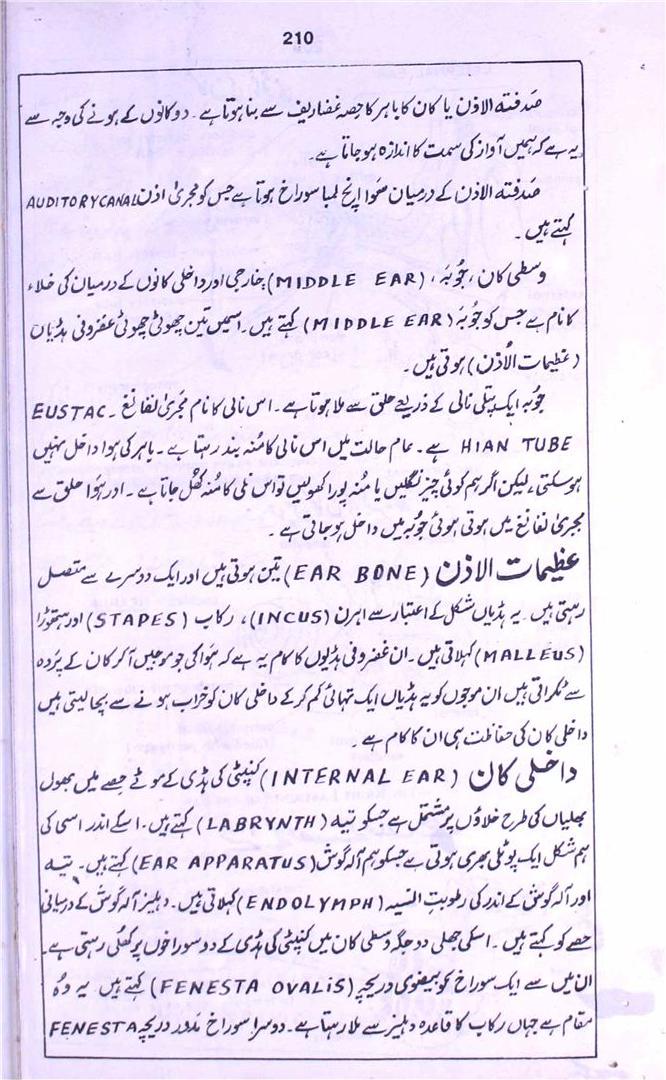 210
صَدفتہ الاذن یا کان کا باہر کا حصہ غضاریف سے بنا ہوتا ہے۔ دو کانوں کے ہونے کی وجہ سے
یہ ہے کہ ہمیں آواز کی سمت کا اندازہ ہو جاتا ہے۔
صَدفتہ الاذن کے درمیان سَوا اِنچ لمبا سوراخ ہوتا ہے جس کو مجریٰ اذن AUDITORY CANAL
کہتے ہیں۔
وسطی کان، جُوبَہ، (MIDDLE EAR) خارجی اور داخلی کانوں کے درمیان کی خلاء
کا نام ہے جس کو جُوبَہ (MIDDLE EAR) کہتے ہیں۔ اسمیں تین چھوٹی چھوٹی غفروفی ہڈیاں
(عظیمات الُاذن) ہوتی ہیں۔
جُوبہ ایک پتلی نالی کے ذریعے حلق سے ملا ہوتا ہے۔ اس نالی کا نام مجریٰ نفانغ۔ EUSTAC
HIAN TUBE ہے۔ عام حالت میں اس نالی کا مُنہ بند رہتا ہے۔ باہر کی ہوا داخل نہیں
ہوسکتی، لیکن اگر ہم کوئی چیز نگلیں یا مُنہ پورا کھولیں تو اس نلی کا مُنہ کُھل جاتا ہے۔ اور ہَوا حلق سے
مجریٰ نفانغ میں ہوتی ہوئی جُوبہ میں داخل ہو جاتی ہے۔
عظیمات الاذن (EAR BONE) تین ہوتی ہیں اور ایک دوسرے سے متصل
رہتی ہیں۔ یہ ہڈیاں شکل کے اعتبار سے اہرن (INCUS)، رکاب (STAPES) اور ہتھوڑا
(MALLEUS) کہلاتی ہیں۔ ان غفروفی ہڈیوں کا کام یہ ہے کہ ہَوا کی جو موجیں آکر کان کے پَردہ
سے ٹکراتی ہیں ان موجوں کو یہ ہڈیاں ایک تہائی کم کرکے داخلی کان کو خراب ہونے سے بچا لیتی ہیں
داخلی کان کی حفاظت ہی ان کا کام ہے۔
داخلی کان (INTERNAL EAR) کنپٹی کی ہڈی کے موٹے حصے میں بھول
بھلیاں کی طرح خلاؤں پر مشتمل ہے جسکو تیہ (LABRYNTH) کہتے ہیں۔ اسکے اندر اسی کی
ہم شکل ایک پوٹلی بھری ہوتی ہے جسکو ہم آلہ گوش (EAR APPARATUS) کہتے ہیں۔ تیہ
اور آلہ گوش کے اندر کی رطوبتِ (ENDOLYMPH) کہلاتی ہیں۔ دہلیز آلہ گوش کے درمیانی
حصے کو کہتے ہیں۔ اسکی جھلی دو جگہ وسطی کان میں کنپٹی کی ہڈی کے دو سوراخوں پر کھلی رہتی ہے۔
ان میں سے ایک سوراخ کو بیضوی دریچہ (FENESTA OVALIS) کہتے ہیں۔ یہ وہ
مقام ہے جہاں رکاب کا قاعدہ دہلیز سے ملا رہتا ہے۔ دوسرا سوراخ مدور دریچہ FENESTA